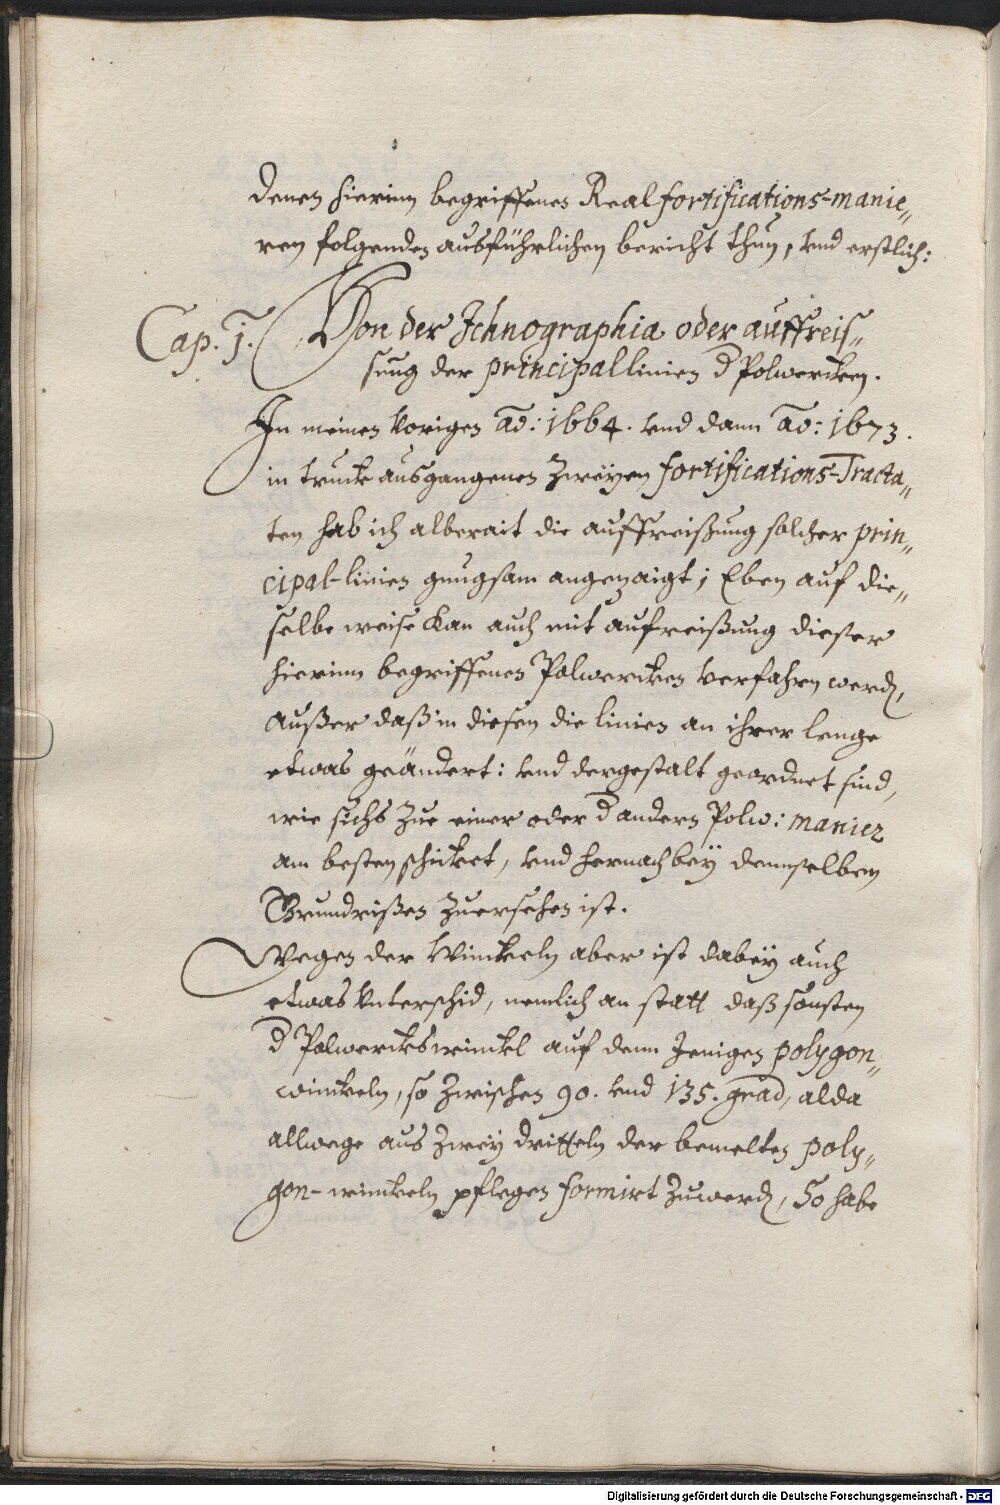 denen hierinn begriffenen Real fortifications-manie„
ren folgenden ausführlichen bericht thun, vnd erstlich:
Cap. 1. Von der Ichnographia oder auffreis„
sung der principallinien d Polwercken.
In meinen Vorigen Ao: 1664. vnd dann Ao: 1673.
in truck ausgangenen Zweÿen fortifications-Tracta„
ten hab ich alberait die auffreißung solcher prin„
cipal-linien gnugsam angezaigt; Eben auf die„
selbe weise kan auch mit aufreißung dießer
hierinn begriffenen Polwercken verfahrn werdn,
außer daß in diesen die linien an ihrer lenge
etwas geändert: vnd dergestalt geordnet sind,
wie sichs zue einer oder d andern Polw: manier
am besten schicket, vnd hernach beÿ demselben
Grundrißen zuersehen ist.
Wegen der Winckeln aber ist dabeÿ auch
etwas Vnterschid, nemlich an statt daß sonsten
d Polwerckswinckl auf denn Jenigen polygon„
winckeln, so zwischen 90. vnd 135. grad, alda
allwege aus Zweÿ dritteln der bemelten poly„
gon-winckeln pflegen formirt zuwerdn, So habe
Digitalisierung gefördert durch die Deutsche Forschungsgemeinschaft - DFG